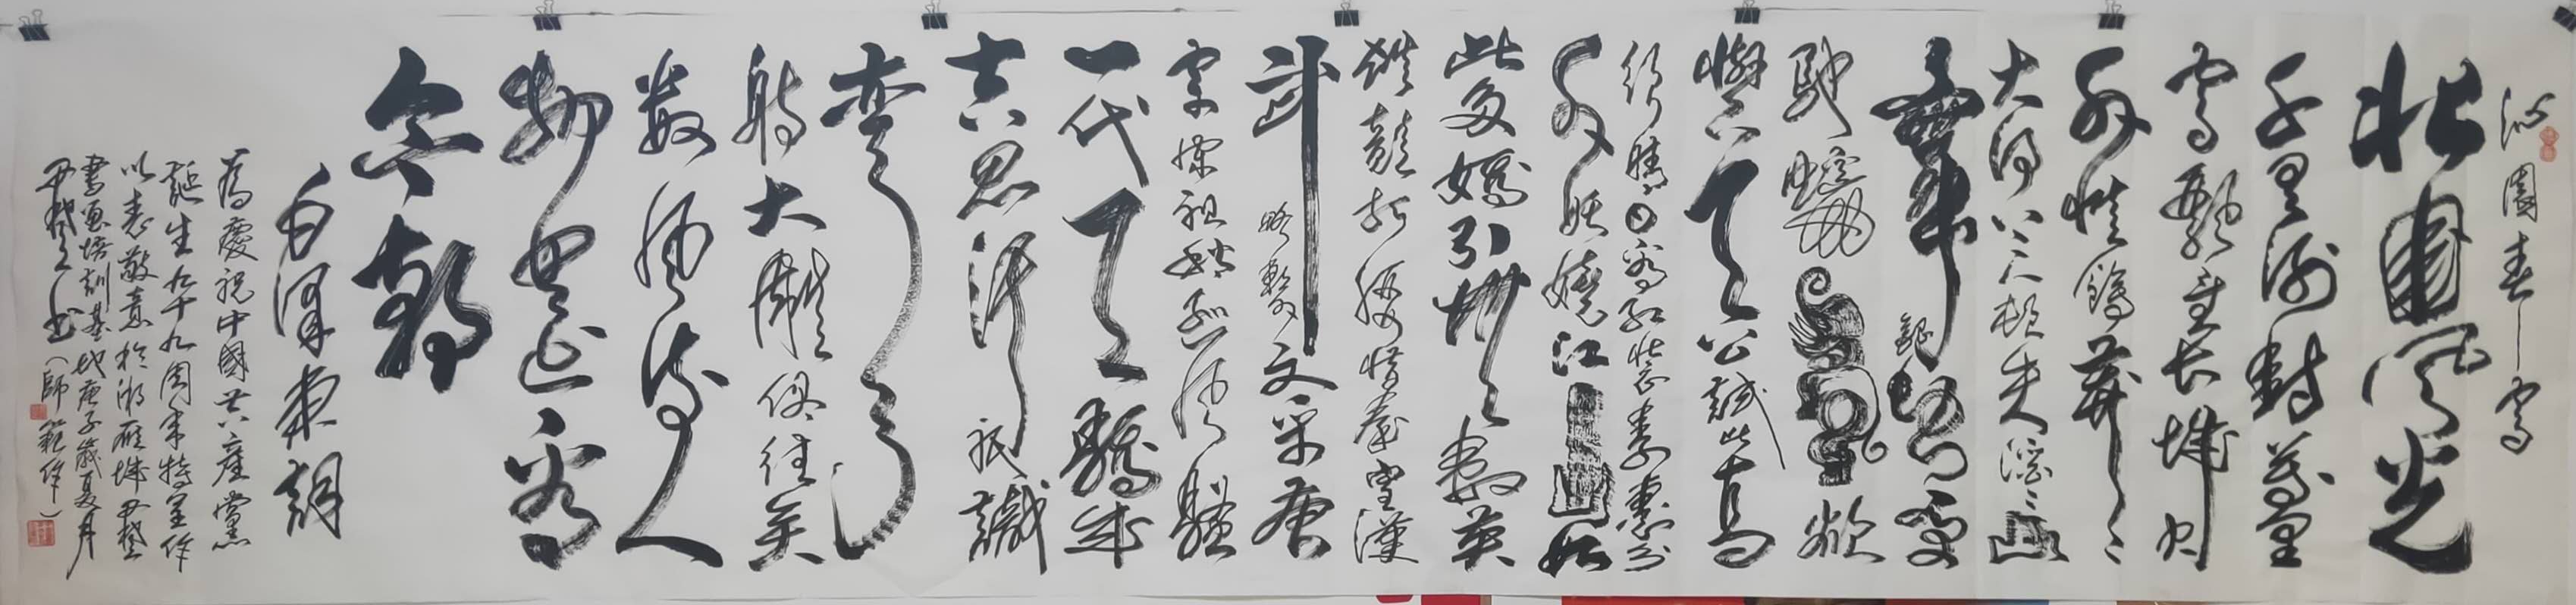 沁園春—雪
北國風光
千里冰封萬里
雪飄望長城内
外惟餘莽〻
大河上下頓失滔〻山
舞銀蛇原
馳蠟象欲
與天公試比高
須晴日看紅裝素裹分
外妖嬈江山如
此多嬌引無數英
雄競折腰惜秦皇漢
武略輸文采唐
宗宋祖稍遜風騷
一代天驕成
吉思汗祇識
彎弓
射大雕俱往矣
數風流人
物還看
今朝
毛澤東詞
為慶祝中國共產黨
誕生九十九周年特作
以表敬意於湘雁城尹
書畫培訓基地庚子歲夏月
尹書（師範作）